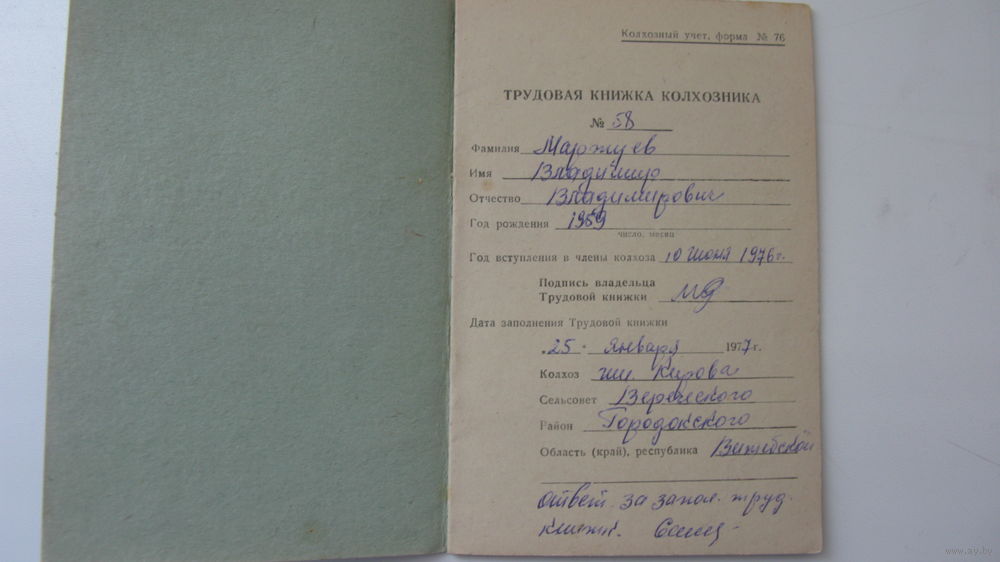 Колхозный учет, форма № 76
ТРУДОВАЯ КНИЖКА КОЛХОЗНИКА
№ 58
Фамилия Маржуев
Имя Владимир
Отчество Владимирович
Год рождения 1959
число, месяц
Год вступления в члены колхоза 10 июня 1976 г.
Подпись владельца
Трудовой книжки
Дата заполнения Трудовой книжки
25 января 1977 г.
Колхоз им. Кирова
Сельсовет Веречского
Район Городокского
Область (край), республика Витебской
Ответ. за запол. труд.
книжк.
www.ay.by